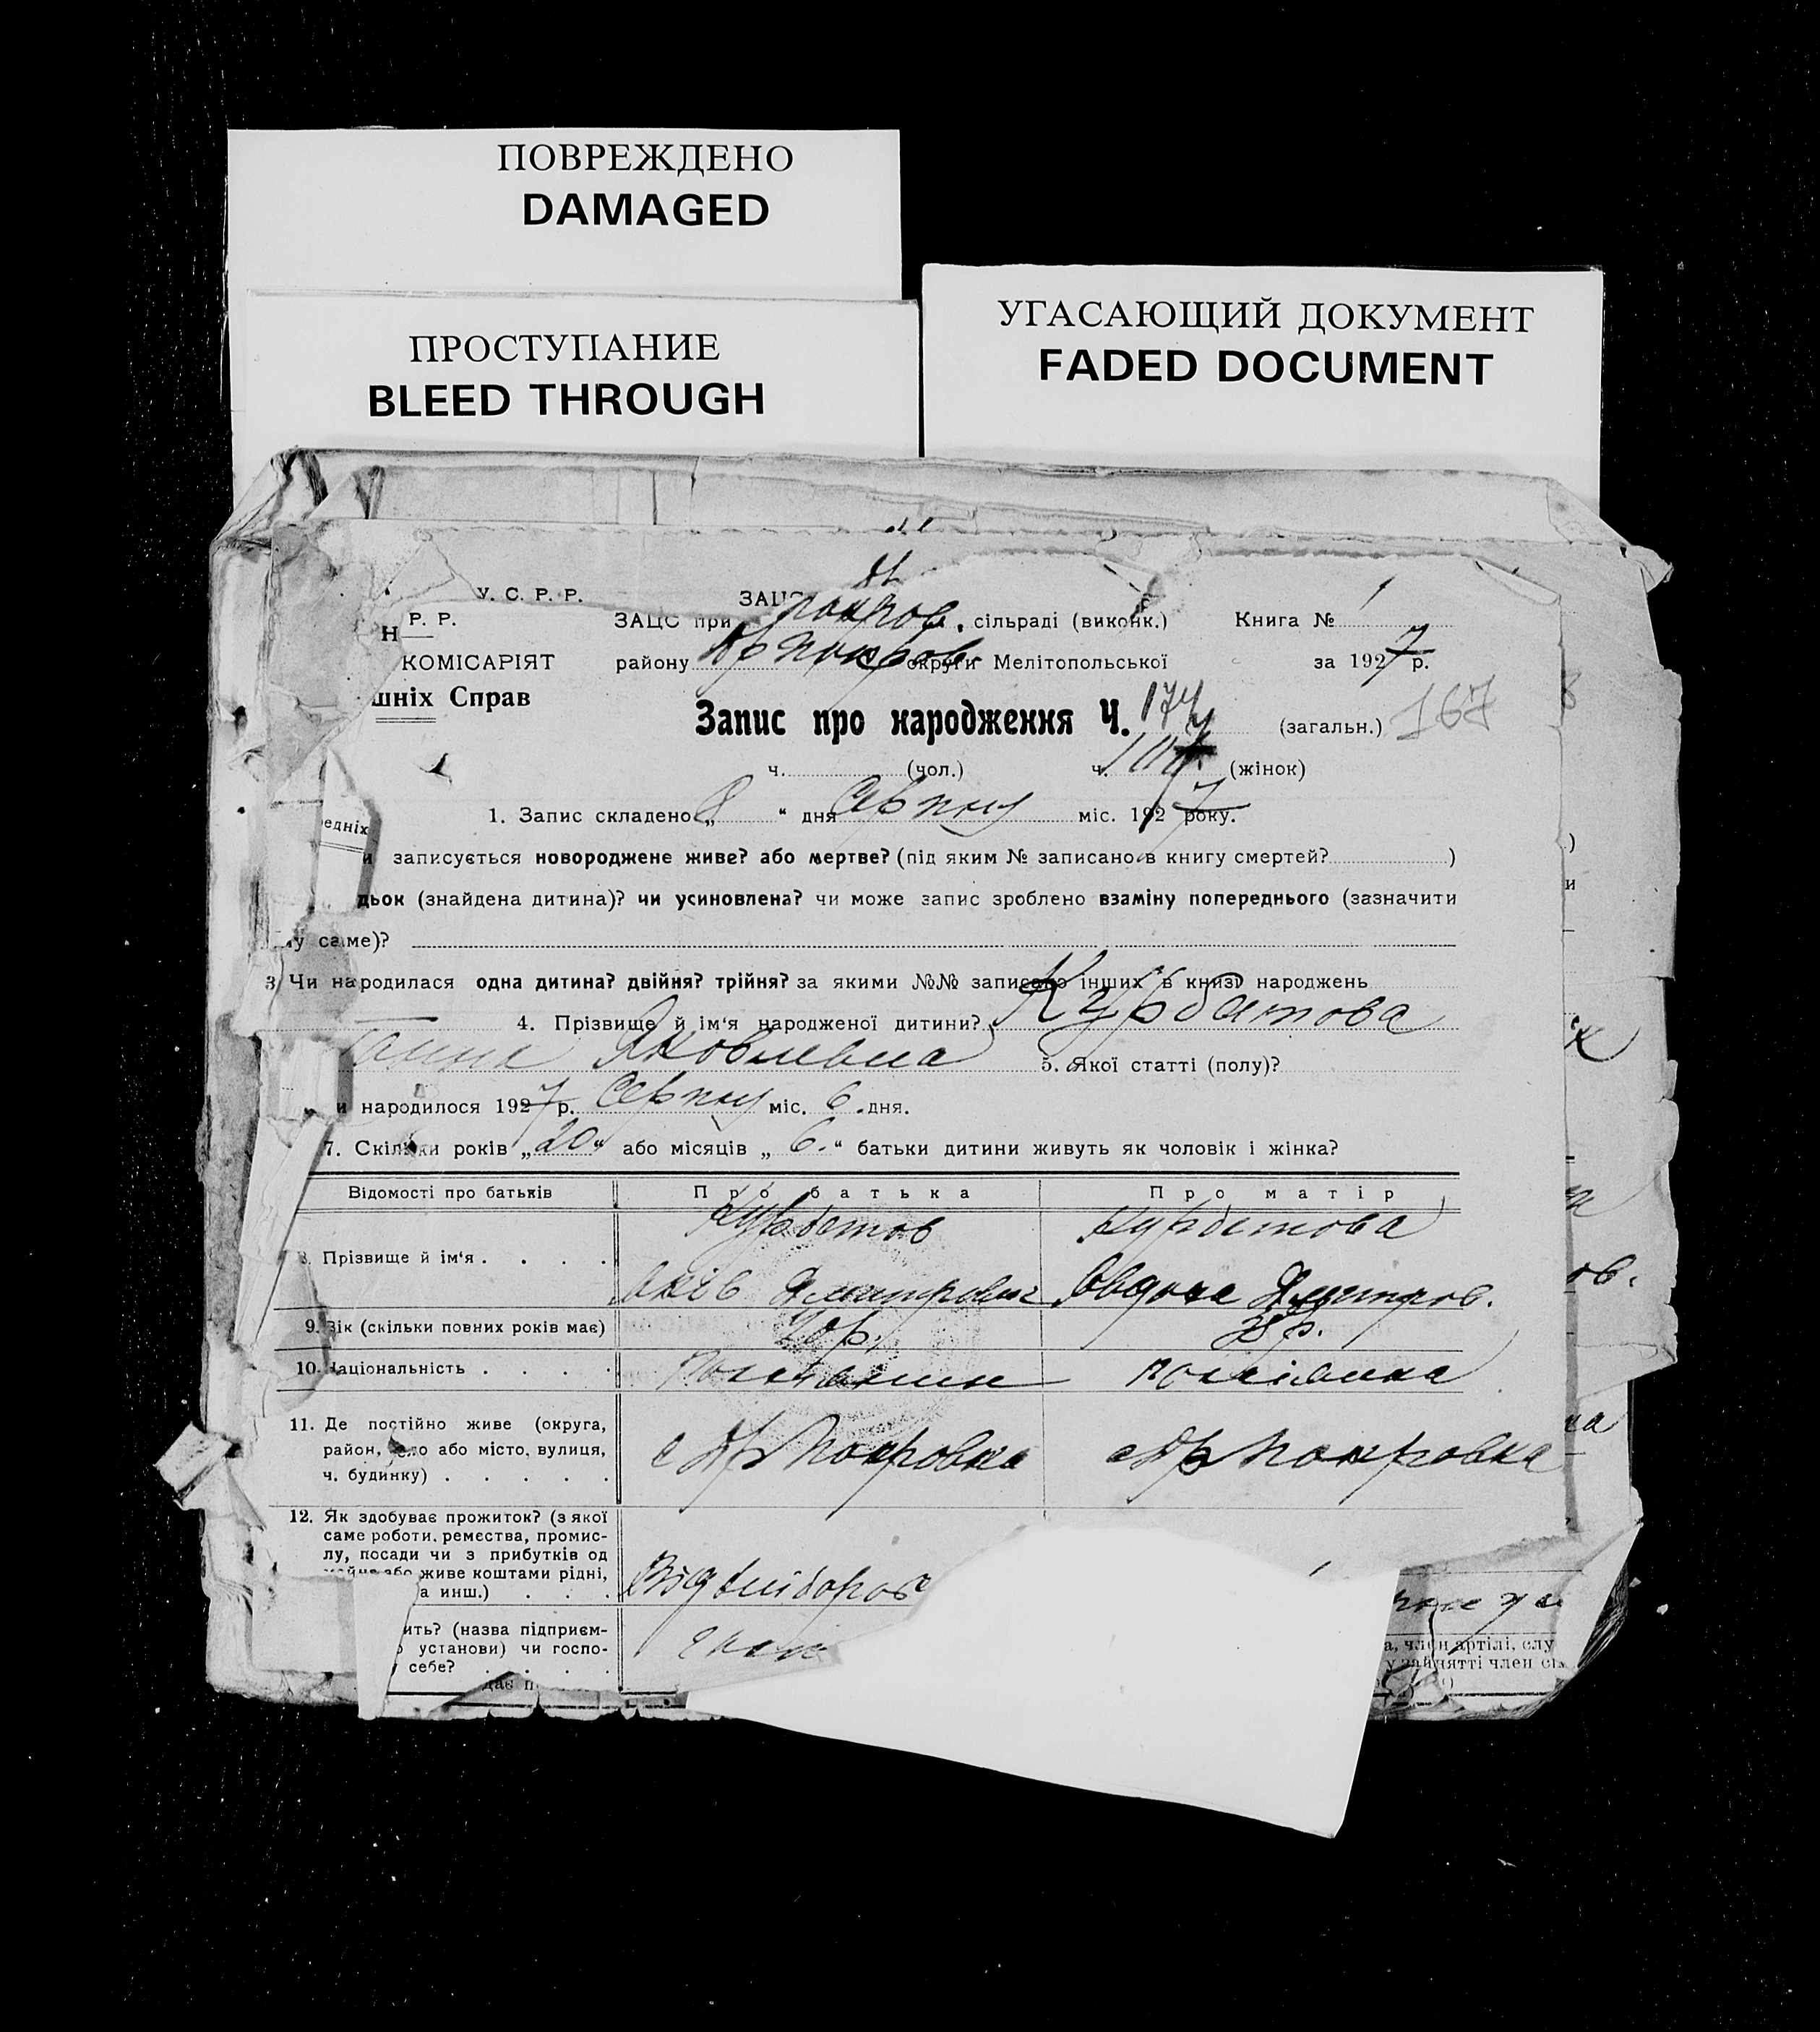 ПОВРЕЖДЕНО
DAMAGED
ПРОСТУПАНИЕ
BLEED THROUGH
УГАСАЮЩИЙ ДОКУМЕНТ
FADED DOCUMENT
У. С. Р. Р. ЗАЦС
Р. Р. ЗАЦС при покров. сільраді (виконк.) Книга № 1
Н
КОМІСАРІЯТ району Др Покров округи Мелітопольської за 1927 р.
шніх Справ
Запис про народження Ч. 174 (загальн.) 167
ч. (чол.) ч. (жінок)
1. Запис складено „8“ дня Серпня міс. 1927 року.
едніх
и записується новороджене живе? або мертве? (під яким № записано в книгу смертей? )
дьок (знайдена дитина)? чи усиновлена? чи може запис зроблено взаміну попереднього (зазначити
му саме)?
3. Чи народилася одна дитина? двійня? трійня? за якими №№ записано інших в книзі народжень
4. Прізвище й ім‘я народженої дитини? Курбатова
Ганна Яковлевна 5. Якої статті (полу)?
и народилося 1927 р. Серпня міс. 6 дня.
7. Скільки років „20“ або місяців „6“ батьки дитини живуть як чоловік і жінка?
Відомості про батьків Про батька Про матір
Курбатов Курбатова
8. Прізвище й ім‘я
Яків Дмитрович Овдоча Дмитров.
9. Вік (скільки повних років має) р. 38 р.
10. Національність росіянка
11. Де постійно живе (округа,
район, село або місто, вулиця, с Др Покровка с Др Покровка
ч. будинку)
12. Як здобуває прожиток? (з якої
саме роботи, ремества, промис-
лу, посади чи з прибутків од
майна або живе коштами рідні, Від хліборобс
а инш.)
ить? (назва підприєм-
о установи) чи госпо-
у себе?
дає п
а, член артілі, слу
у зайнятті член сім